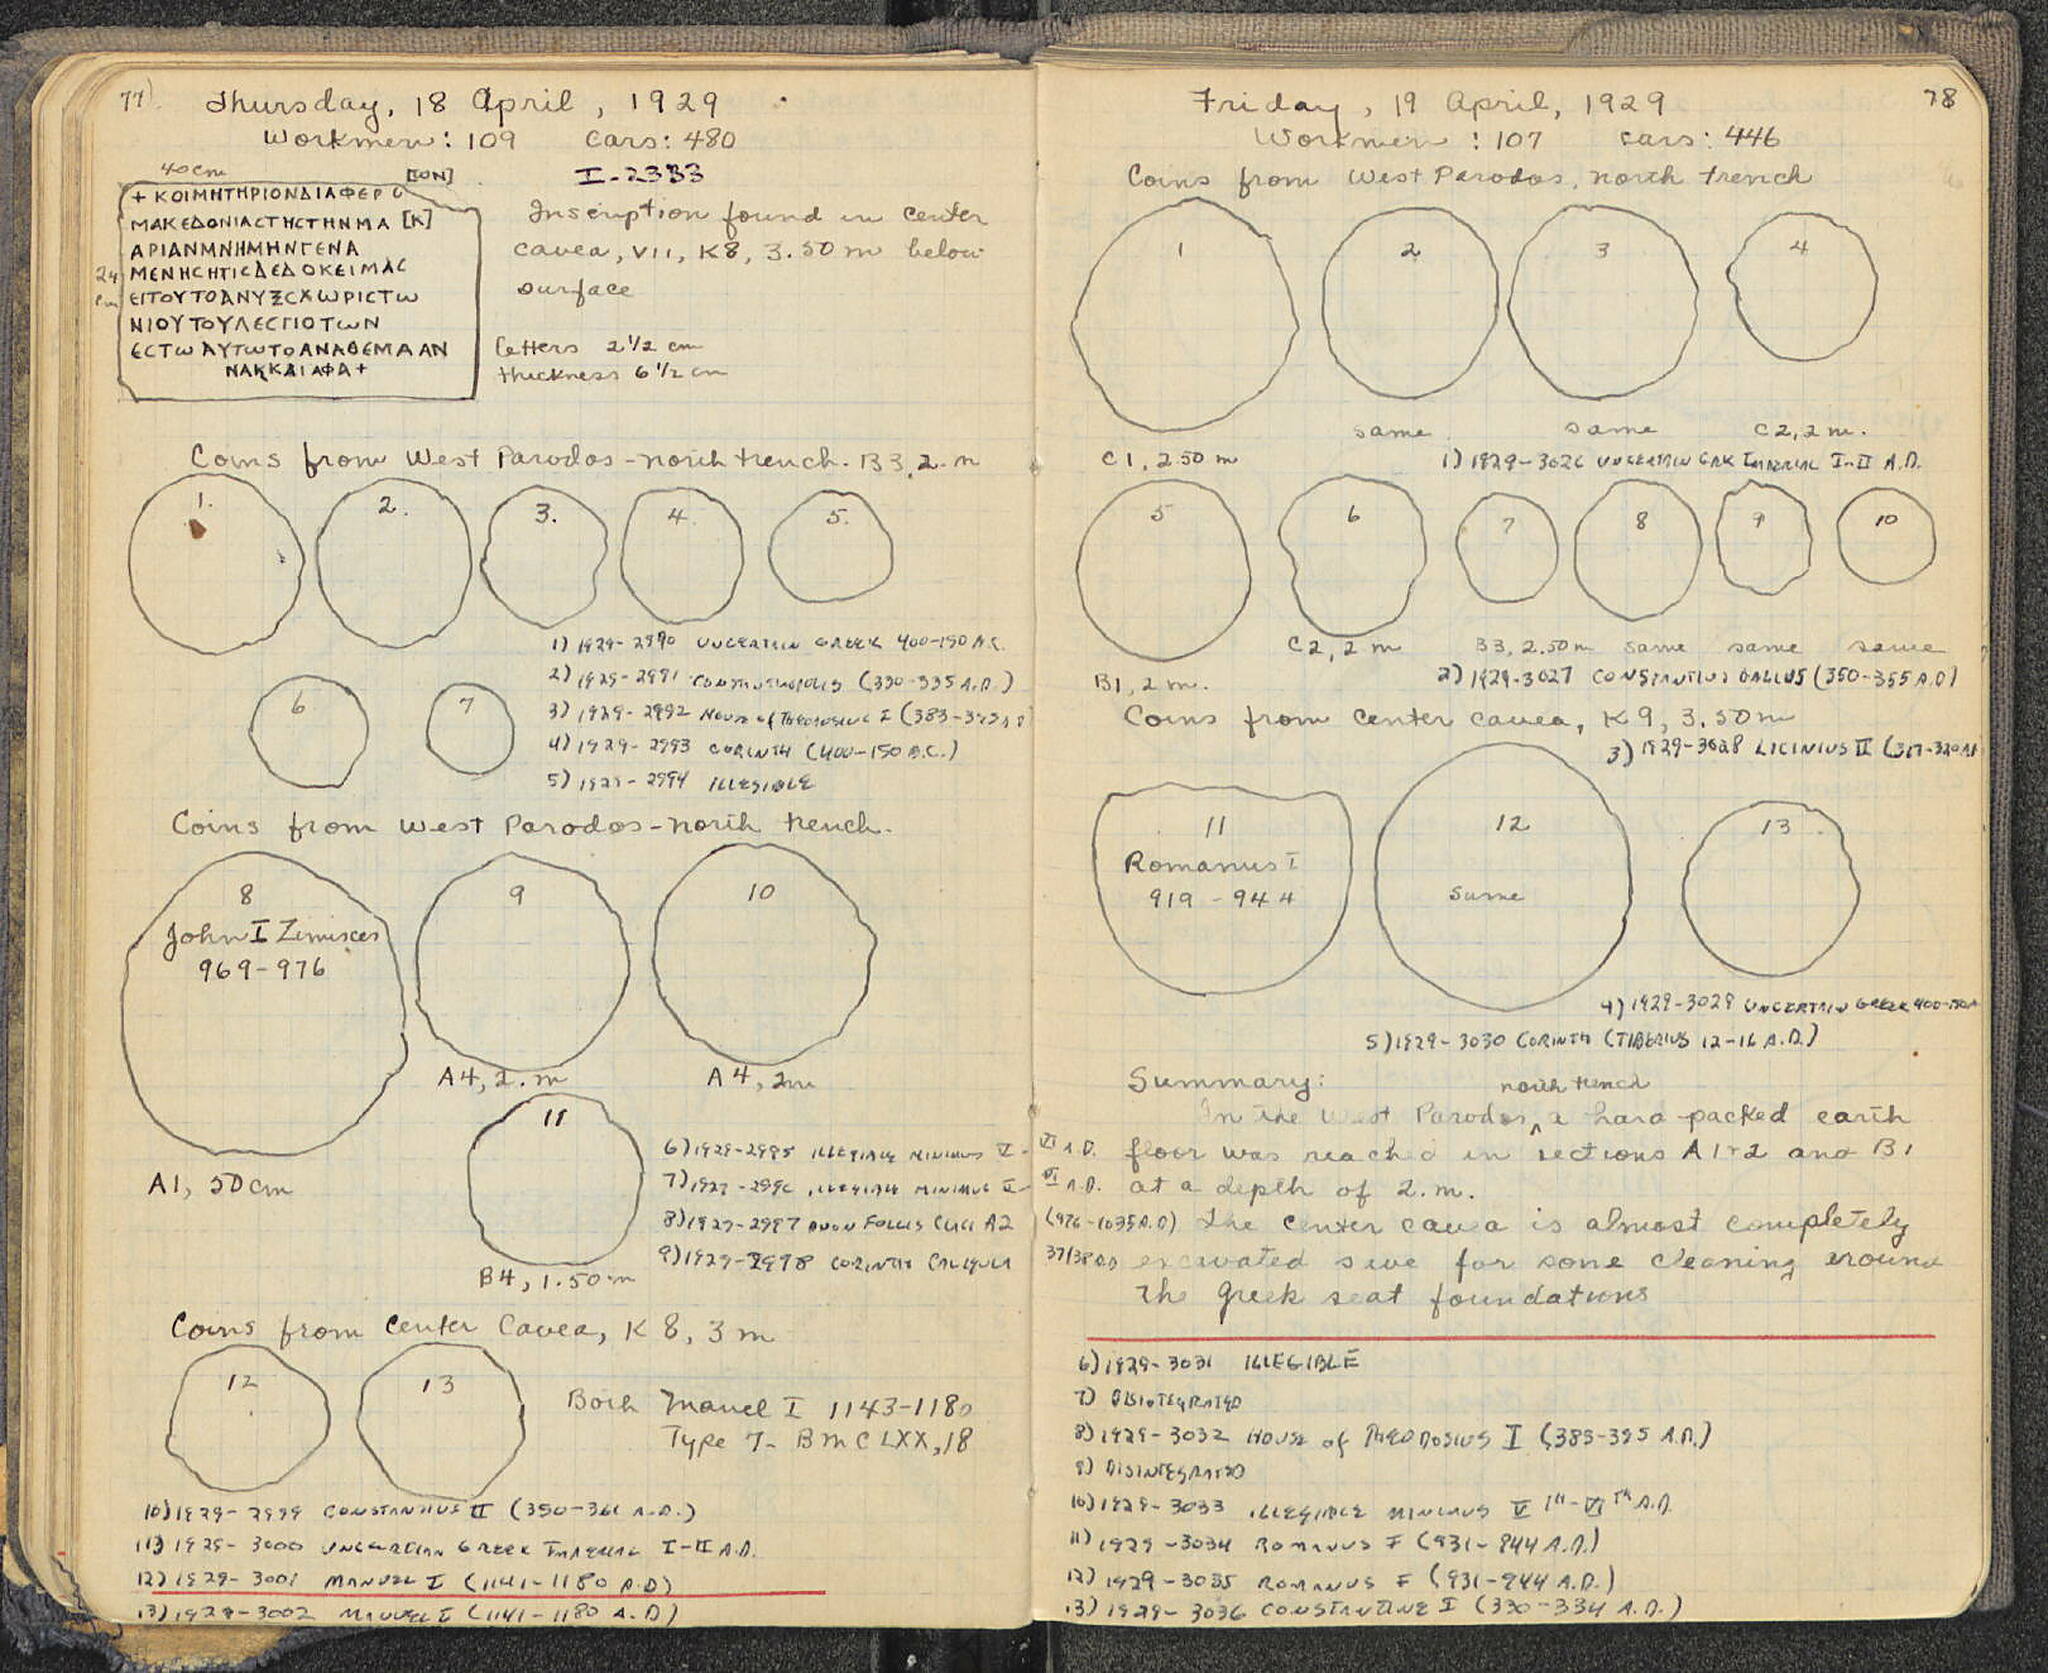 77)
Thursday, 18 April, 1929
Workmen: 109 Cars: 480
40 cm [ION] I-2333
+ ΚΟΙΜΗΤΗΡΙΟΝΔΙΑΦΕΡ
ΜΑΚΕΔΟΝΙΑCΤΗCΤΗΝΜΑ [Κ]
ΑΡΙΑΝΜΝΗΜΗΝΓΕΝΑ
24 cm
ΜΕΝΗCΗΤΙCΔΕΔΟΚΕΙΜΑC
ΕΙΤΟΥΤΟΑΝΥΞCΧωΡΙCΤω
ΝΙΟΥΤΟΥΛΕCΠΟΤωΝ
ΕCΤωΑΥΤωΤΟΑΝΑΘΕΜΑΑΝ
ΝΑΚΚΑΙΑΦΑ+
Inscription found in center
cavea, VII, K8, 3.50 m below
surface
letters 2 1/2 cm
thickness 6 1/2 cm
Coins from West Parodos - north trench. B3, 2. m
1. 2. 3. 4. 5.
1) 1929-2990 UNCERTAIN GREEK 400-150 B.C.
2) 1929-2991 CONSTANTINOPOLIS (330-335 A.D.)
6 7
3) 1929-2992 HOUSE of THEODOSIUS I (383-395 A.D
4) 1929-2993 CORINTH (400-150 B.C.)
5) 1929-2994 ILLEGIBLE
Coins from West Parodos - north trench.
8 9 10
John I Zimisces
969-976
A4, 2. m A4, 2m
11
A1, 50 cm
B4, 1.50 m
6) 1929-2995 ILLEGIBLE MINIMUS V - VI A.D.
7) 1929-2996 ILLEGIBLE MINIMUS V - VI A.D.
8) 1929-2997 ANON FOLLIS CLASS A2 (976-1035 A.D)
9) 1929-2998 CORINTH CALIGULA 37/38 A.D
Coins from Center Cavea, K 8, 3 m
12 13
Both Manuel I 1143-1180
Type 7- BMC LXX, 18
10) 1929-2999 CONSTANTIUS II (350-361 A.D.)
11) 1929-3000 UNCERTAIN GREEK IMPERIAL I-II A.D.
12) 1929-3001 MANUEL I (1141-1180 A.D)
13) 1929-3002 MANUEL I (1141-1180 A.D)
78
Friday, 19 April, 1929
Workmen: 107 cars: 446
Coins from West Parodos, north trench
1 2 3 4
same same C2, 2 m.
C1, 2.50 m
1) 1929-3026 UNCERTAIN GRK IMPERIAL I-II A.D.
5 6 7 8 9 10
C2, 2 m B3, 2.50 m same same same
B1, 2 m.
2) 1929-3027 CONSTANTIUS GALLUS (350-355 A.D)
Coins from center cavea, K 9, 3.50 m
3) 1929-3028 LICINIUS II (317-320 A.
11 12 13
Romanus I
919 - 944 same
4) 1929-3029 UNCERTAIN GREEK 400-150
5) 1929-3030 CORINTH (TIBERIUS 12-16 A.D.)
Summary: north trench
In the West Parodos, ^ a hard-packed earth
floor was reached in sections A1+2 and B1
at a depth of 2. m.
The center cavea is almost completely
excavated save for some cleaning around
the Greek seat foundations
6) 1929-3031 ILLEGIBLE
7) DISINTEGRATED
8) 1929-3032 HOUSE of THEODOSIUS I (383-395 A.D.)
9) DISINTEGRATED
10) 1929-3033 ILLEGIBLE MINIMUS V TH - VI TH A.D.
11) 1929-3034 ROMANUS I (931-944 A.D.)
12) 1929-3035 ROMANUS I (931-944 A.D.)
13) 1929-3036 CONSTANTINE I (330-334 A.D.)